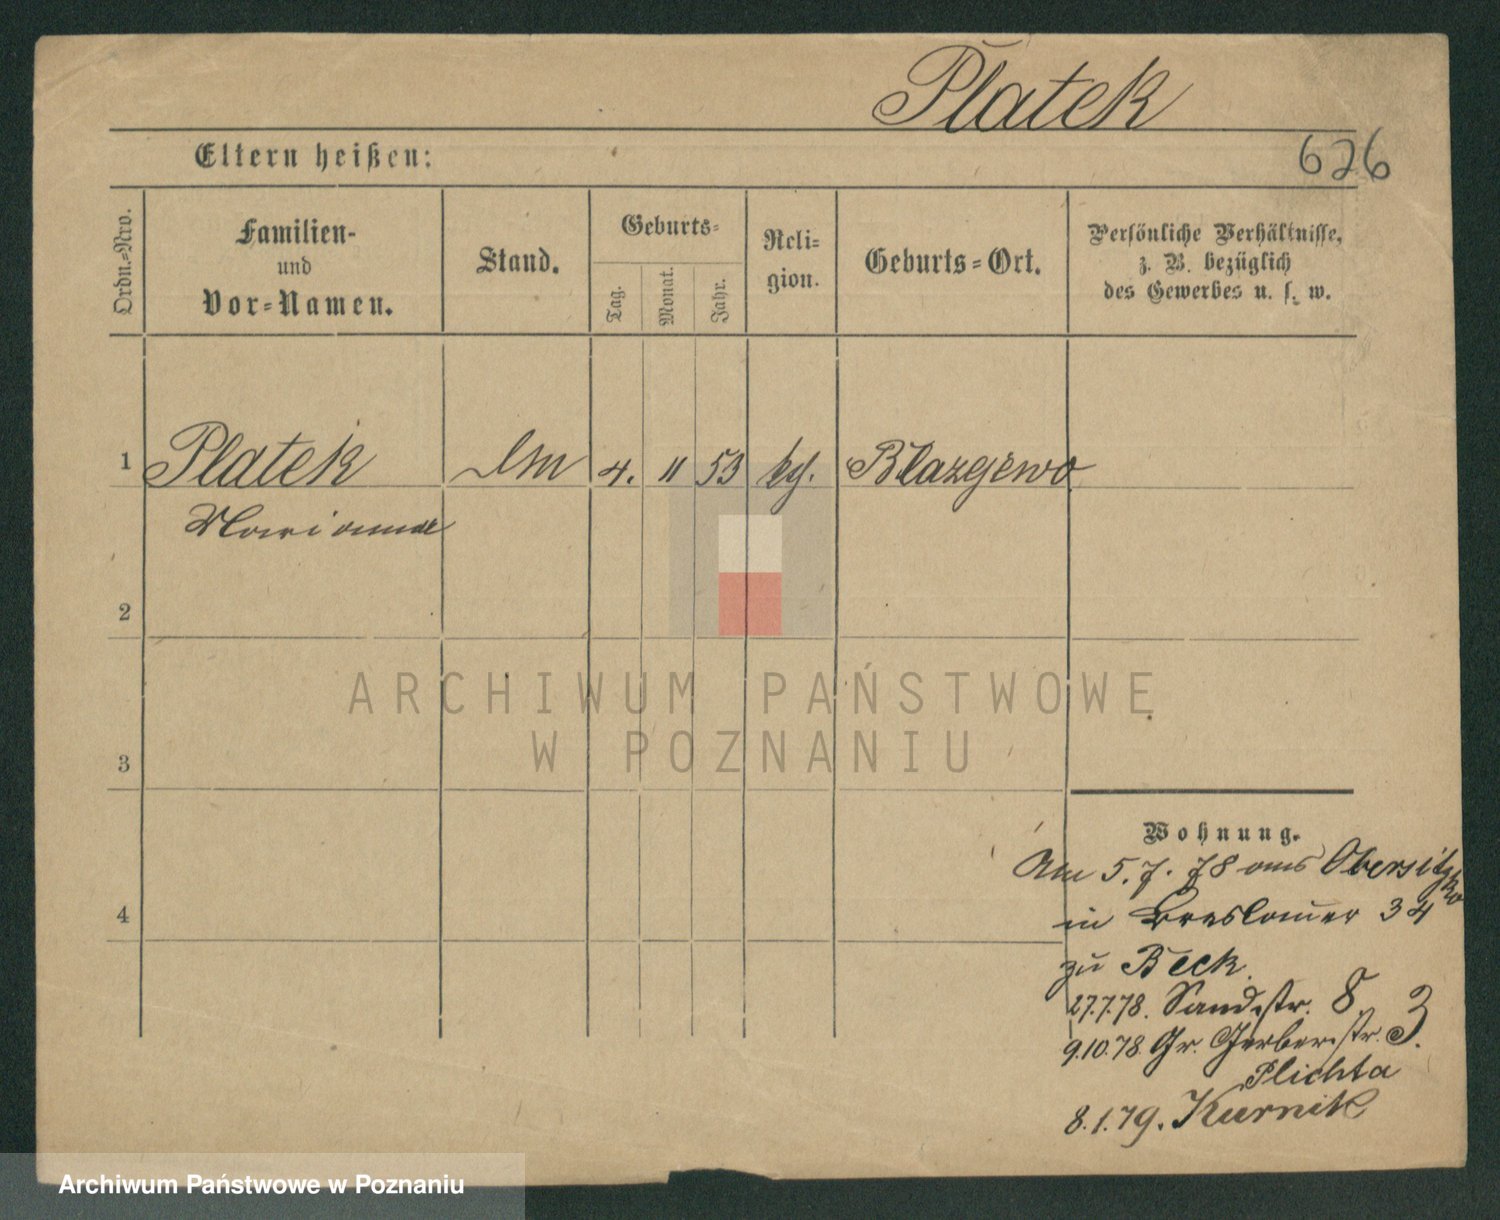 Platek
626
Eltern heißen:
Ordn.-Nro.
Familien-
und
Vor-Namen.
Stand.
Geburts-
Tag.
Monat.
Jahr.
Reli-
gion.
Geburts-Ort.
Persönliche Verhältnisse,
z. B. bezüglich
des Gewerbes u. s. w.
1 Platek 4. 11 53 Blazejewo
Marianna
2
3
4
ARCHIWUM PAŃSTWOWE
W POZNANIU
Wohnung.
Am 5.7.78 aus Obersitzko
in Breslauer 34
zu Beck.
27.7.78. Sandstr. 8.
9.10.78. Gr. Gerberstr. 3.
Plichta
8.1.79. Kurnik
Archiwum Państwowe w Poznaniu